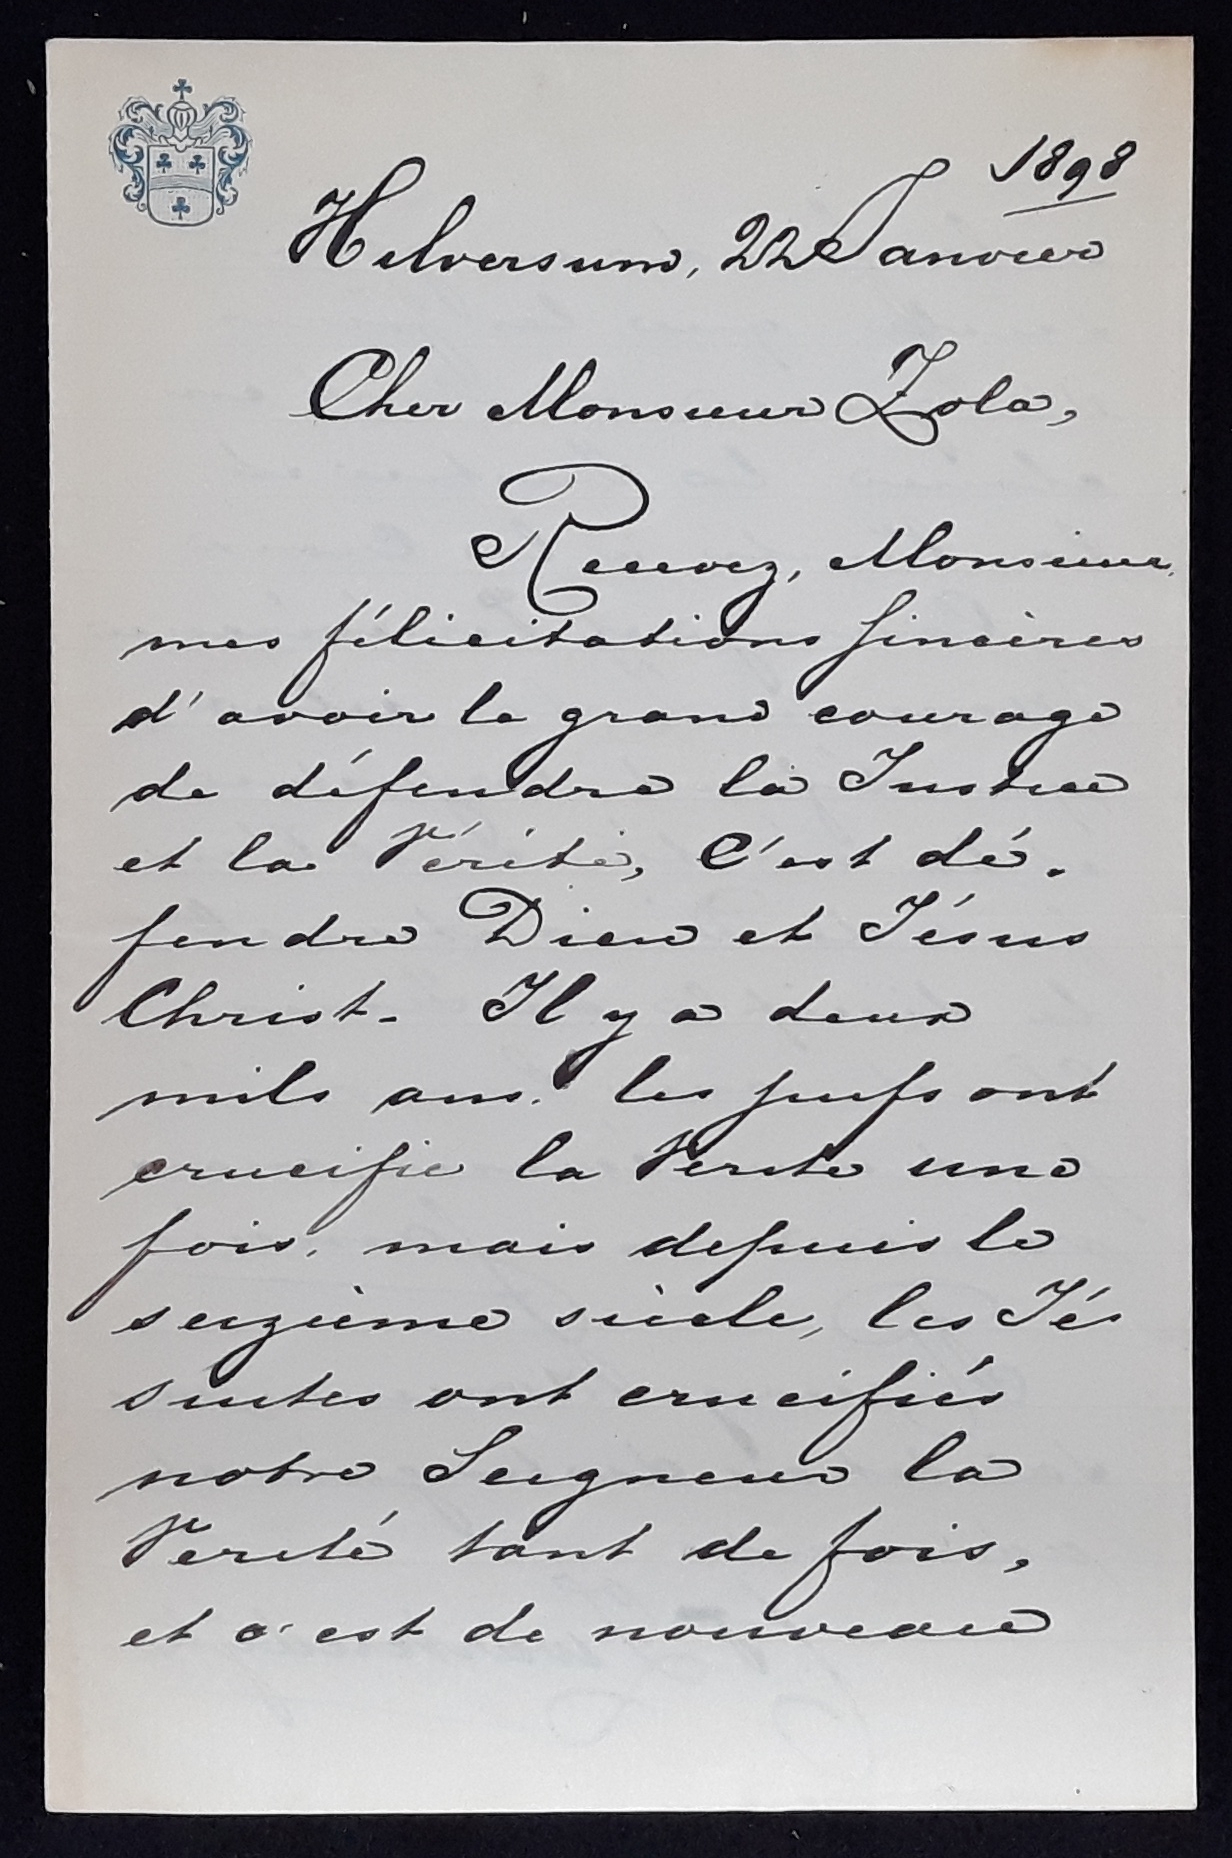 1898
Hilversum, 22 Janvier
Cher Monsieur Zola,
Recevez, Monsieur,
mes félicitations sincères
d'avoir le grand courage
de défendre la Justice
et la Vérité, C'est dé-
fendre Dieu et Jésus
Christ. Il y a deux
mils ans. les juifs ont
crucifie la Verite une
fois, mais depuis le
seizième siècle, les Jé
suites ont crucifiés
notre Seigneur la
Verité tant de fois,
et c'est de nouveau